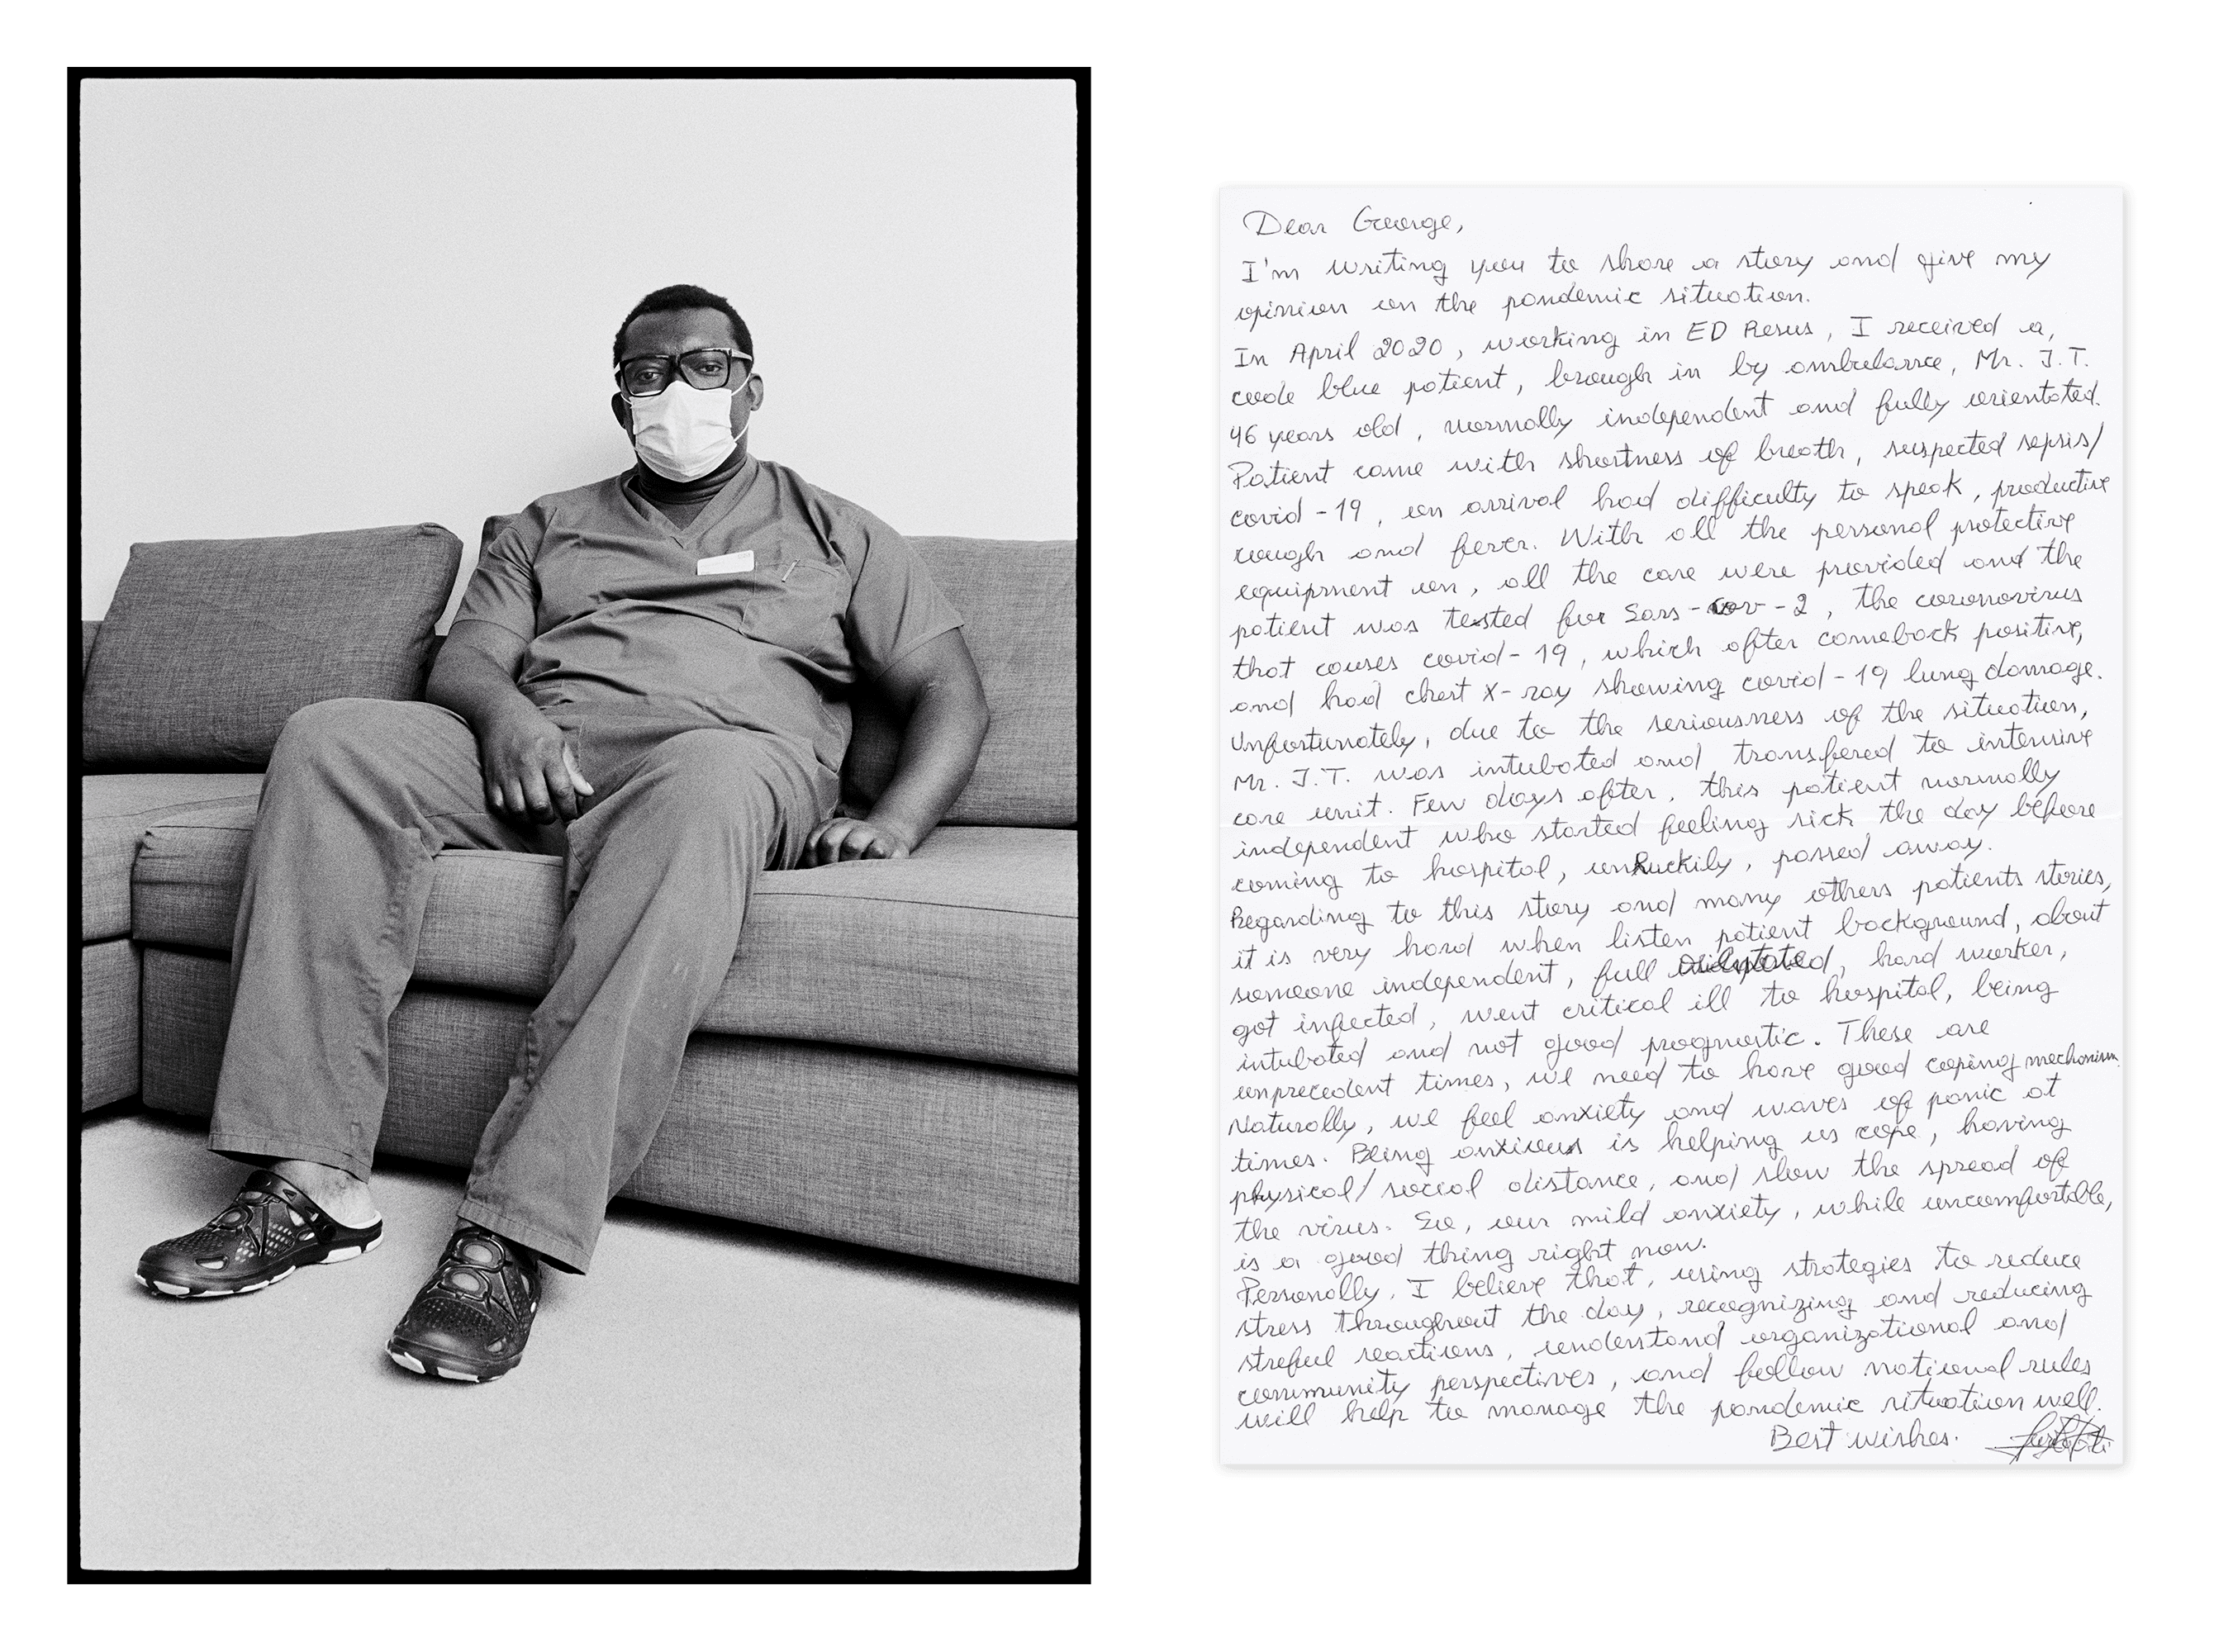 Dear George,
I'm writing you to share a story and give my
opinion on the pandemic situation.
In April 2020, working in ED Resus, I received a,
code blue patient, brough in by ambulance, Mr. J.T.
46 years old, normally independent and fully orientated.
Patient came with shortness of breath, suspected sepsis/
covid-19, on arrival had difficulty to speak, productive
cough and fever. With all the personal protective
equipment on, all the care were provided and the
patient was tested for Sars-Cov-2, the coronavirus
that causes covid-19, which after comeback positive,
and had chest X-ray showing covid-19 lung damage.
Unfortunately, due to the seriousness of the situation,
Mr. J.T. was intubated and transfered to intensive
care unit. Few days after, this patient normally
independent who started feeling sick the day before
coming to hospital, unluckily, passed away.
Regarding to this story and many others patients stories,
it is very hard when listen patient background, about
someone independent, full orientated, hard worker,
got infected, went critical ill to hospital, being
intubated and not good prognostic. These are
unprecedent times, we need to have good coping mechanism.
Naturally, we feel anxiety and waves of panic at
times. Being anxious is helping us cope, having
physical/social distance, and slow the spread of
the virus. So, our mild anxiety, while uncomfortable,
is a good thing right now.
Personally, I believe that, using strategies to reduce
stress throughout the day, recognizing and reducing
streful reactions, understand organizational and
community perspectives, and follow national rules
will help to manage the pandemic situation well.
Best wishes.